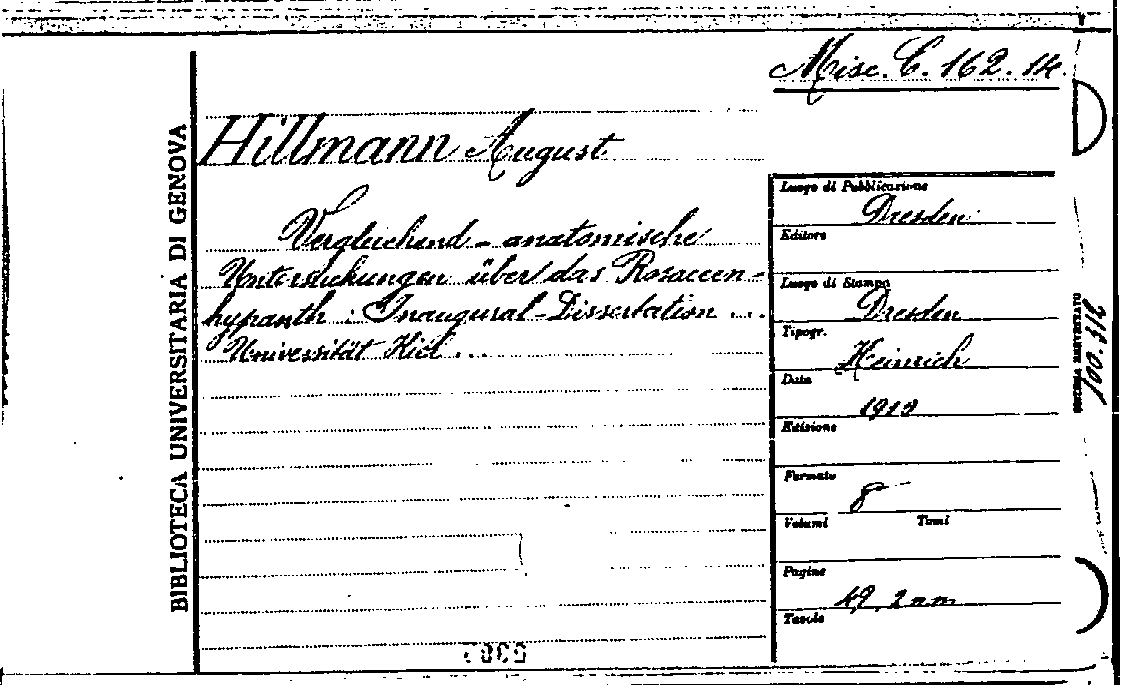 Misc. C. 162. 14.
BIBLIOTECA UNIVERSITARIA DI GENOVA
Hillmann August
Vergleichend - anatomische
Untersuchungen über das Rosaceen-
hypanth : Inaugural-Dissertation ...
Universität Kiel ...
Luogo di Pubblicazione
Dresden
Editore
Luogo di Stampa
Dresden
Tipogr.
Heinrich
Data
1910
Edizione
Formato
8
Volumi Tomi
Pagine
49, 2 nn
Tavole